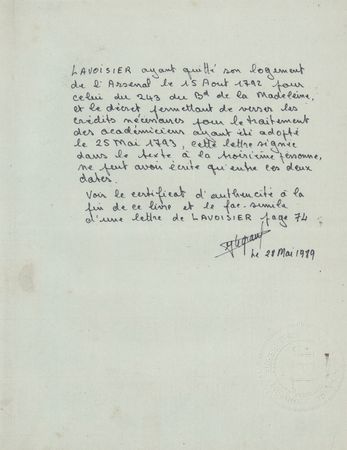 LAVOISIER ayant quitté son logement
de l'Arsenal le 15 Aout 1792 pour
celui du 243 du Bd de la Madeleine,
et le décret permettant de verser les
crédits nécessaires pour le traitement
des académiciens ayant été adopté
le 25 Mai 1793, cette lettre signée
dans le texte à la troisième personne,
ne peut avoir écrite qu'entre ces deux
dates.
Voir le certificat d'authencité à la
fin de ce livre et le fac-simile
d'une lettre de LAVOISIER page 74
Le 28 Mai 1989